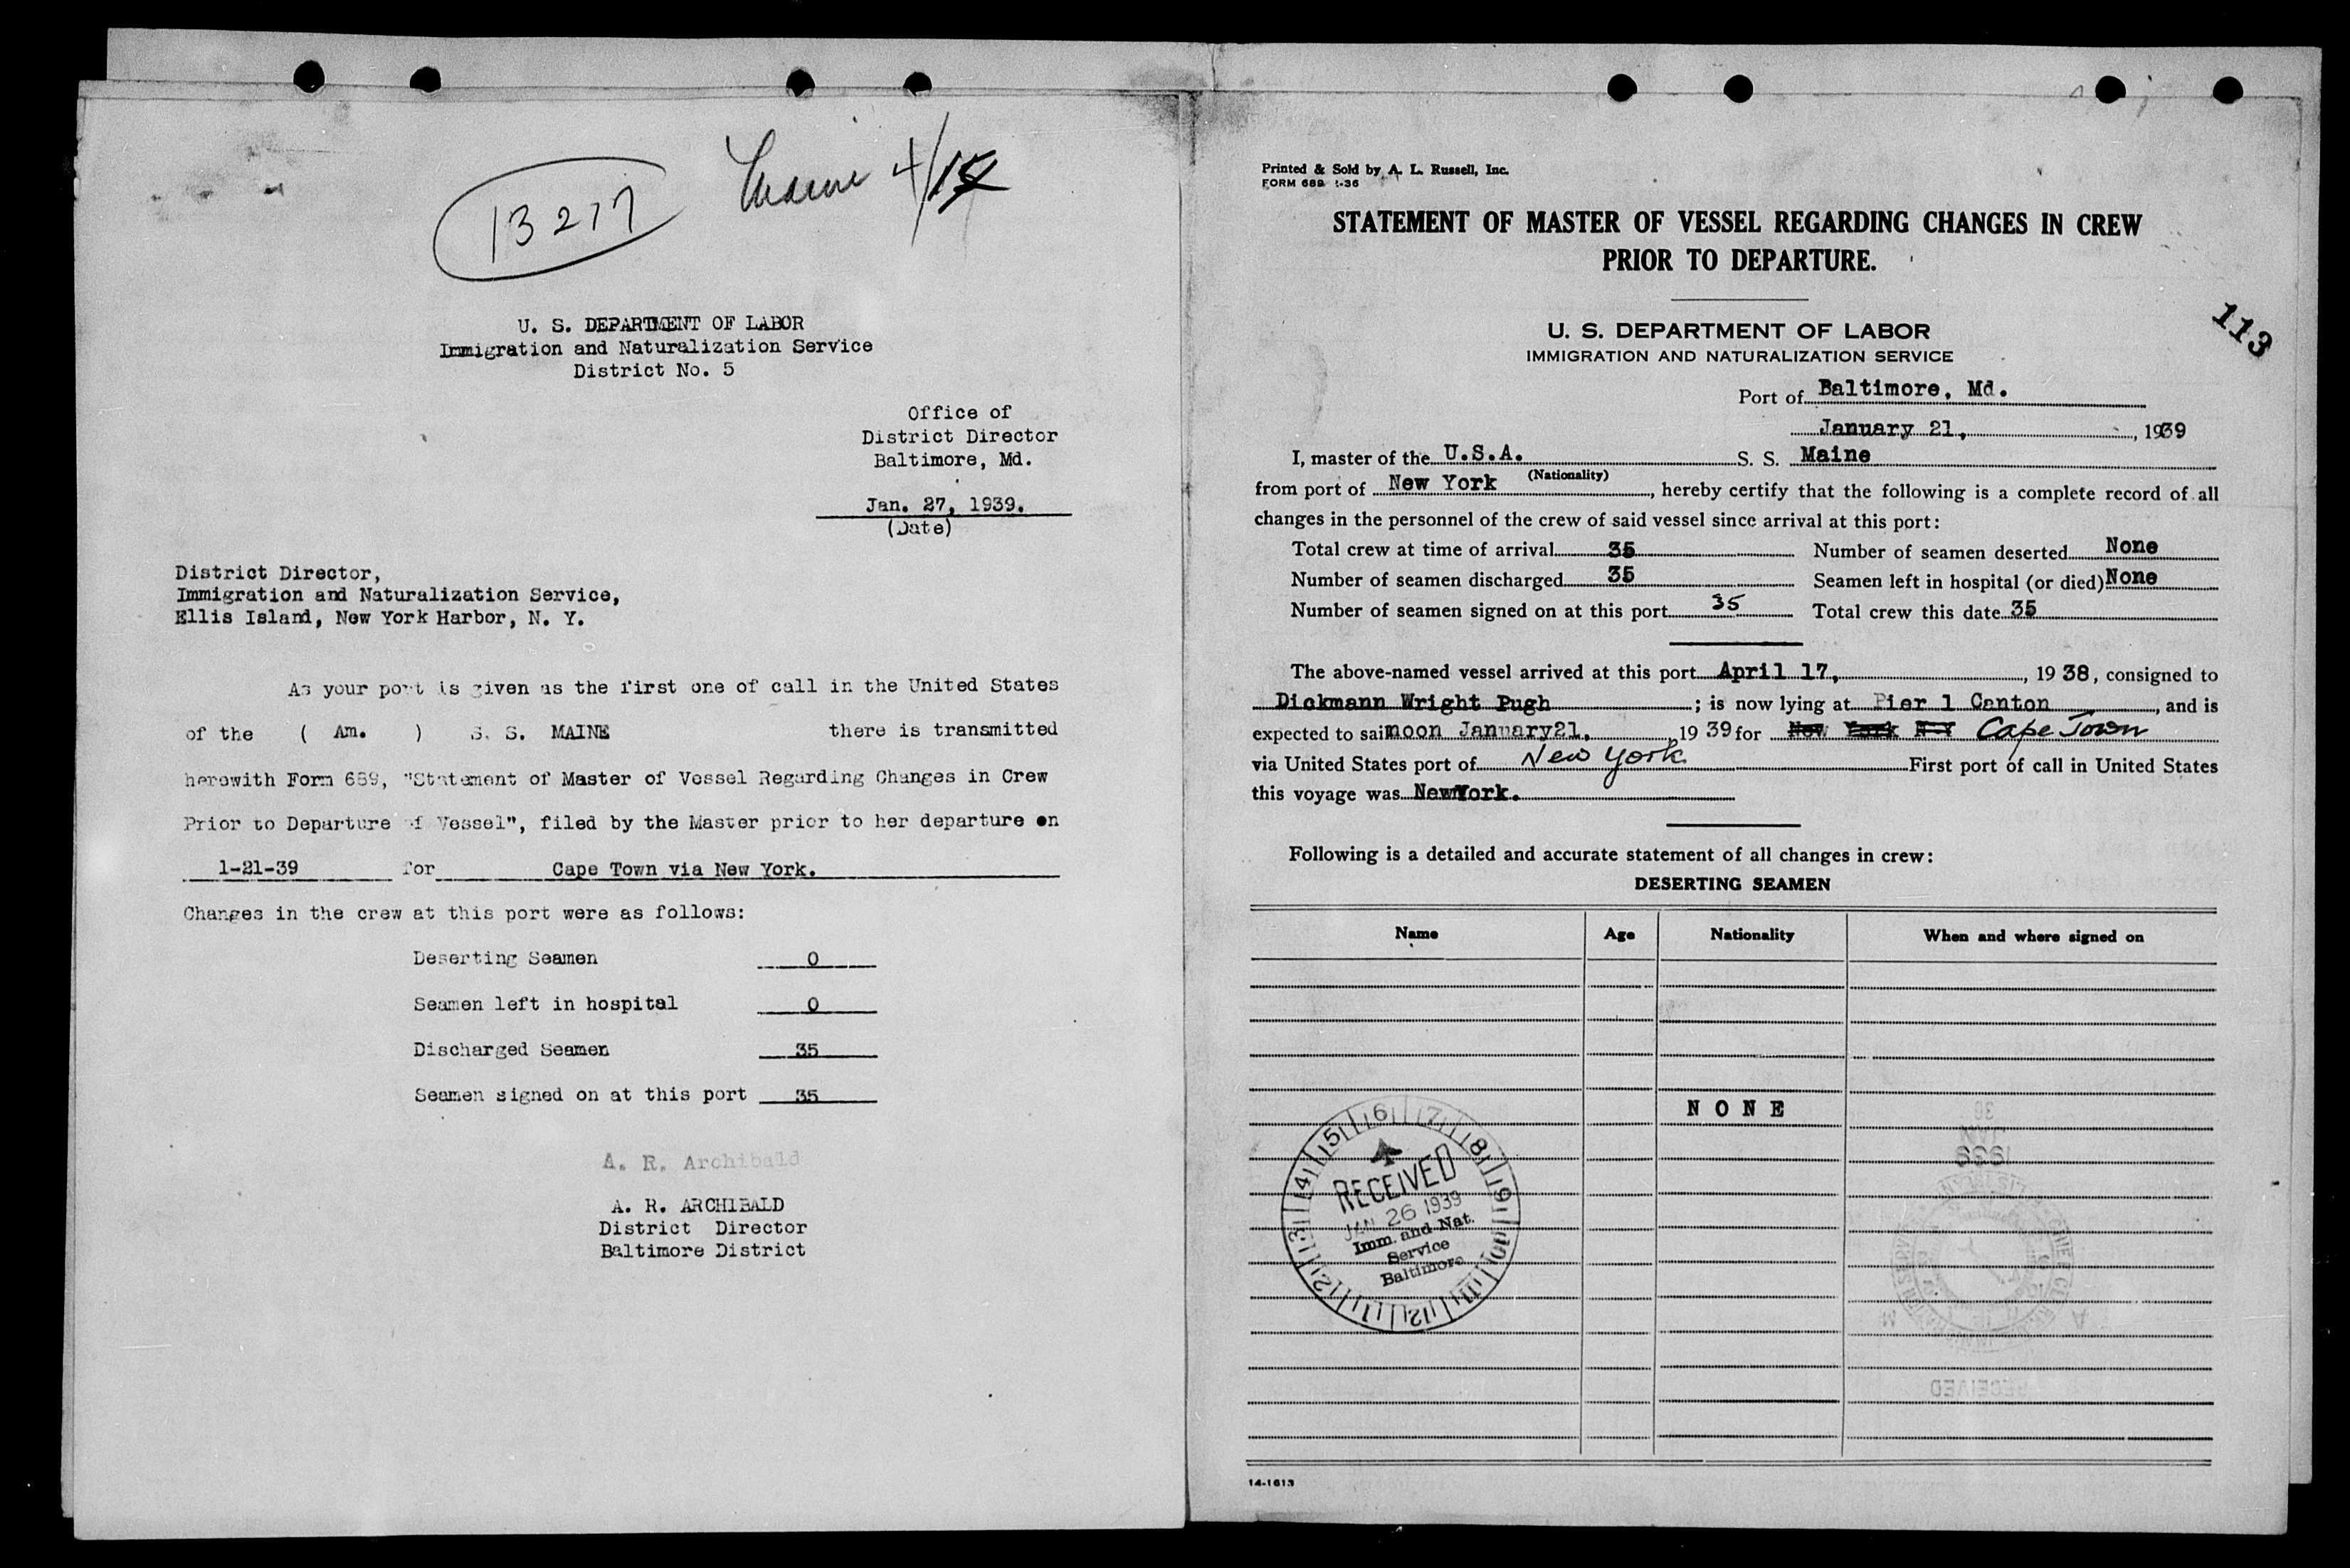 13277
4/15
U. S. DEPARTMENT OF LABOR
Immigration and Naturalization Service
District No. 5
Office of
District Director
Baltimore, Md.
Jan. 27, 1939.
(Date)
District Director,
Immigration and Naturalization Service,
Ellis Island, New York Harbor, N. Y.
As your port is given as the first one of call in the United States
of the ( Am. ) S. S. MAINE there is transmitted
herewith Form 689, "Statement of Master of Vessel Regarding Changes in Crew
Prior to Departure of Vessel", filed by the Master prior to her departure on
1-21-39 for Cape Town via New York.
Changes in the crew at this port were as follows:
Deserting Seamen 0
Seamen left in hospital 0
Discharged Seamen 35
Seamen signed on at this port 35
A. R. Archibald
A. R. ARCHIBALD
District Director
Baltimore District
Printed & Sold by A. L. Russell, Inc.
FORM 689 1-36
STATEMENT OF MASTER OF VESSEL REGARDING CHANGES IN CREW
PRIOR TO DEPARTURE.
113
U. S. DEPARTMENT OF LABOR
IMMIGRATION AND NATURALIZATION SERVICE
Port of Baltimore, Md.
January 21, , 1939
I, master of the U.S.A. S. S. Maine
(Nationality)
from port of New York , hereby certify that the following is a complete record of all
changes in the personnel of the crew of said vessel since arrival at this port:
Total crew at time of arrival 35 Number of seamen deserted None
Number of seamen discharged 35 Seamen left in hospital (or died) None
Number of seamen signed on at this port 35 Total crew this date 35
The above-named vessel arrived at this port April 17, , 19 38, consigned to
Dickmann Wright Pugh ; is now lying at Pier 1 Canton , and is
expected to sail noon January21, , 19 39 for New York N Y Cape Town
via United States port of New York First port of call in United States
this voyage was New York.
Following is a detailed and accurate statement of all changes in crew:
DESERTING SEAMEN
Name Age Nationality When and where signed on
N O N E
6 7 8 9 10 11 12 11 12 13 14 15
RECEIVED
JAN 26 1939
Imm. and Nat.
Service
Baltimore
14-1613